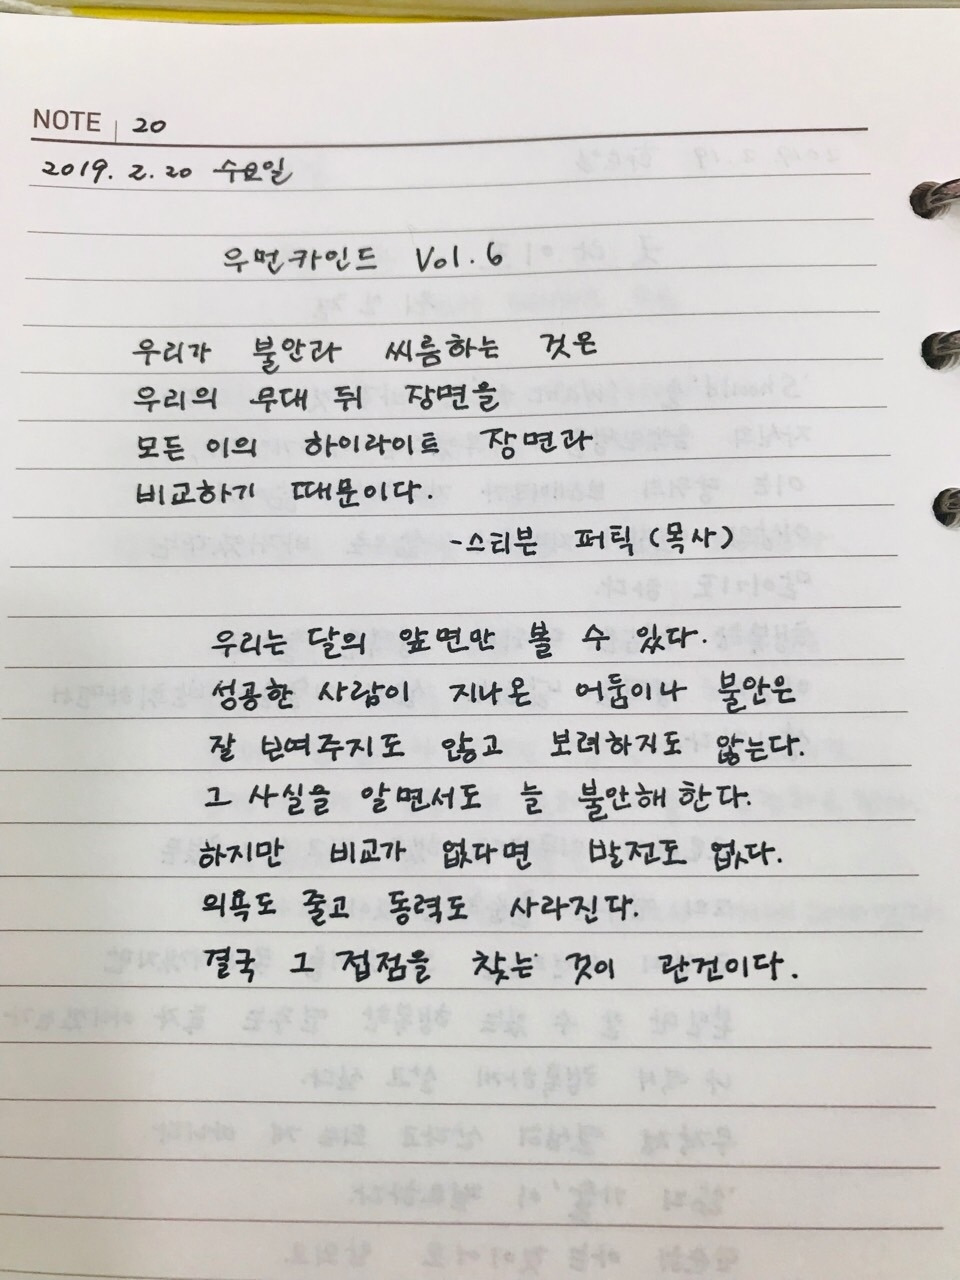 NOTE 20
2019. 2. 20 수요일
우먼카인드 Vol. 6
우리가 불안과 씨름하는 것은
우리의 무대 뒤 장면을
모든 이의 하이라이트 장면과
비교하기 때문이다.
-스티븐 퍼틱(목사)
우리는 달의 앞면만 볼 수 있다.
성공한 사람이 지나온 어둠이나 불안은
잘 보여주지도 않고 보려하지도 않는다.
그 사실을 알면서도 늘 불안해 한다.
하지만 비교가 없다면 발전도 없다.
의욕도 줄고 동력도 사라진다.
결국 그 접점을 찾는 것이 관건이다.